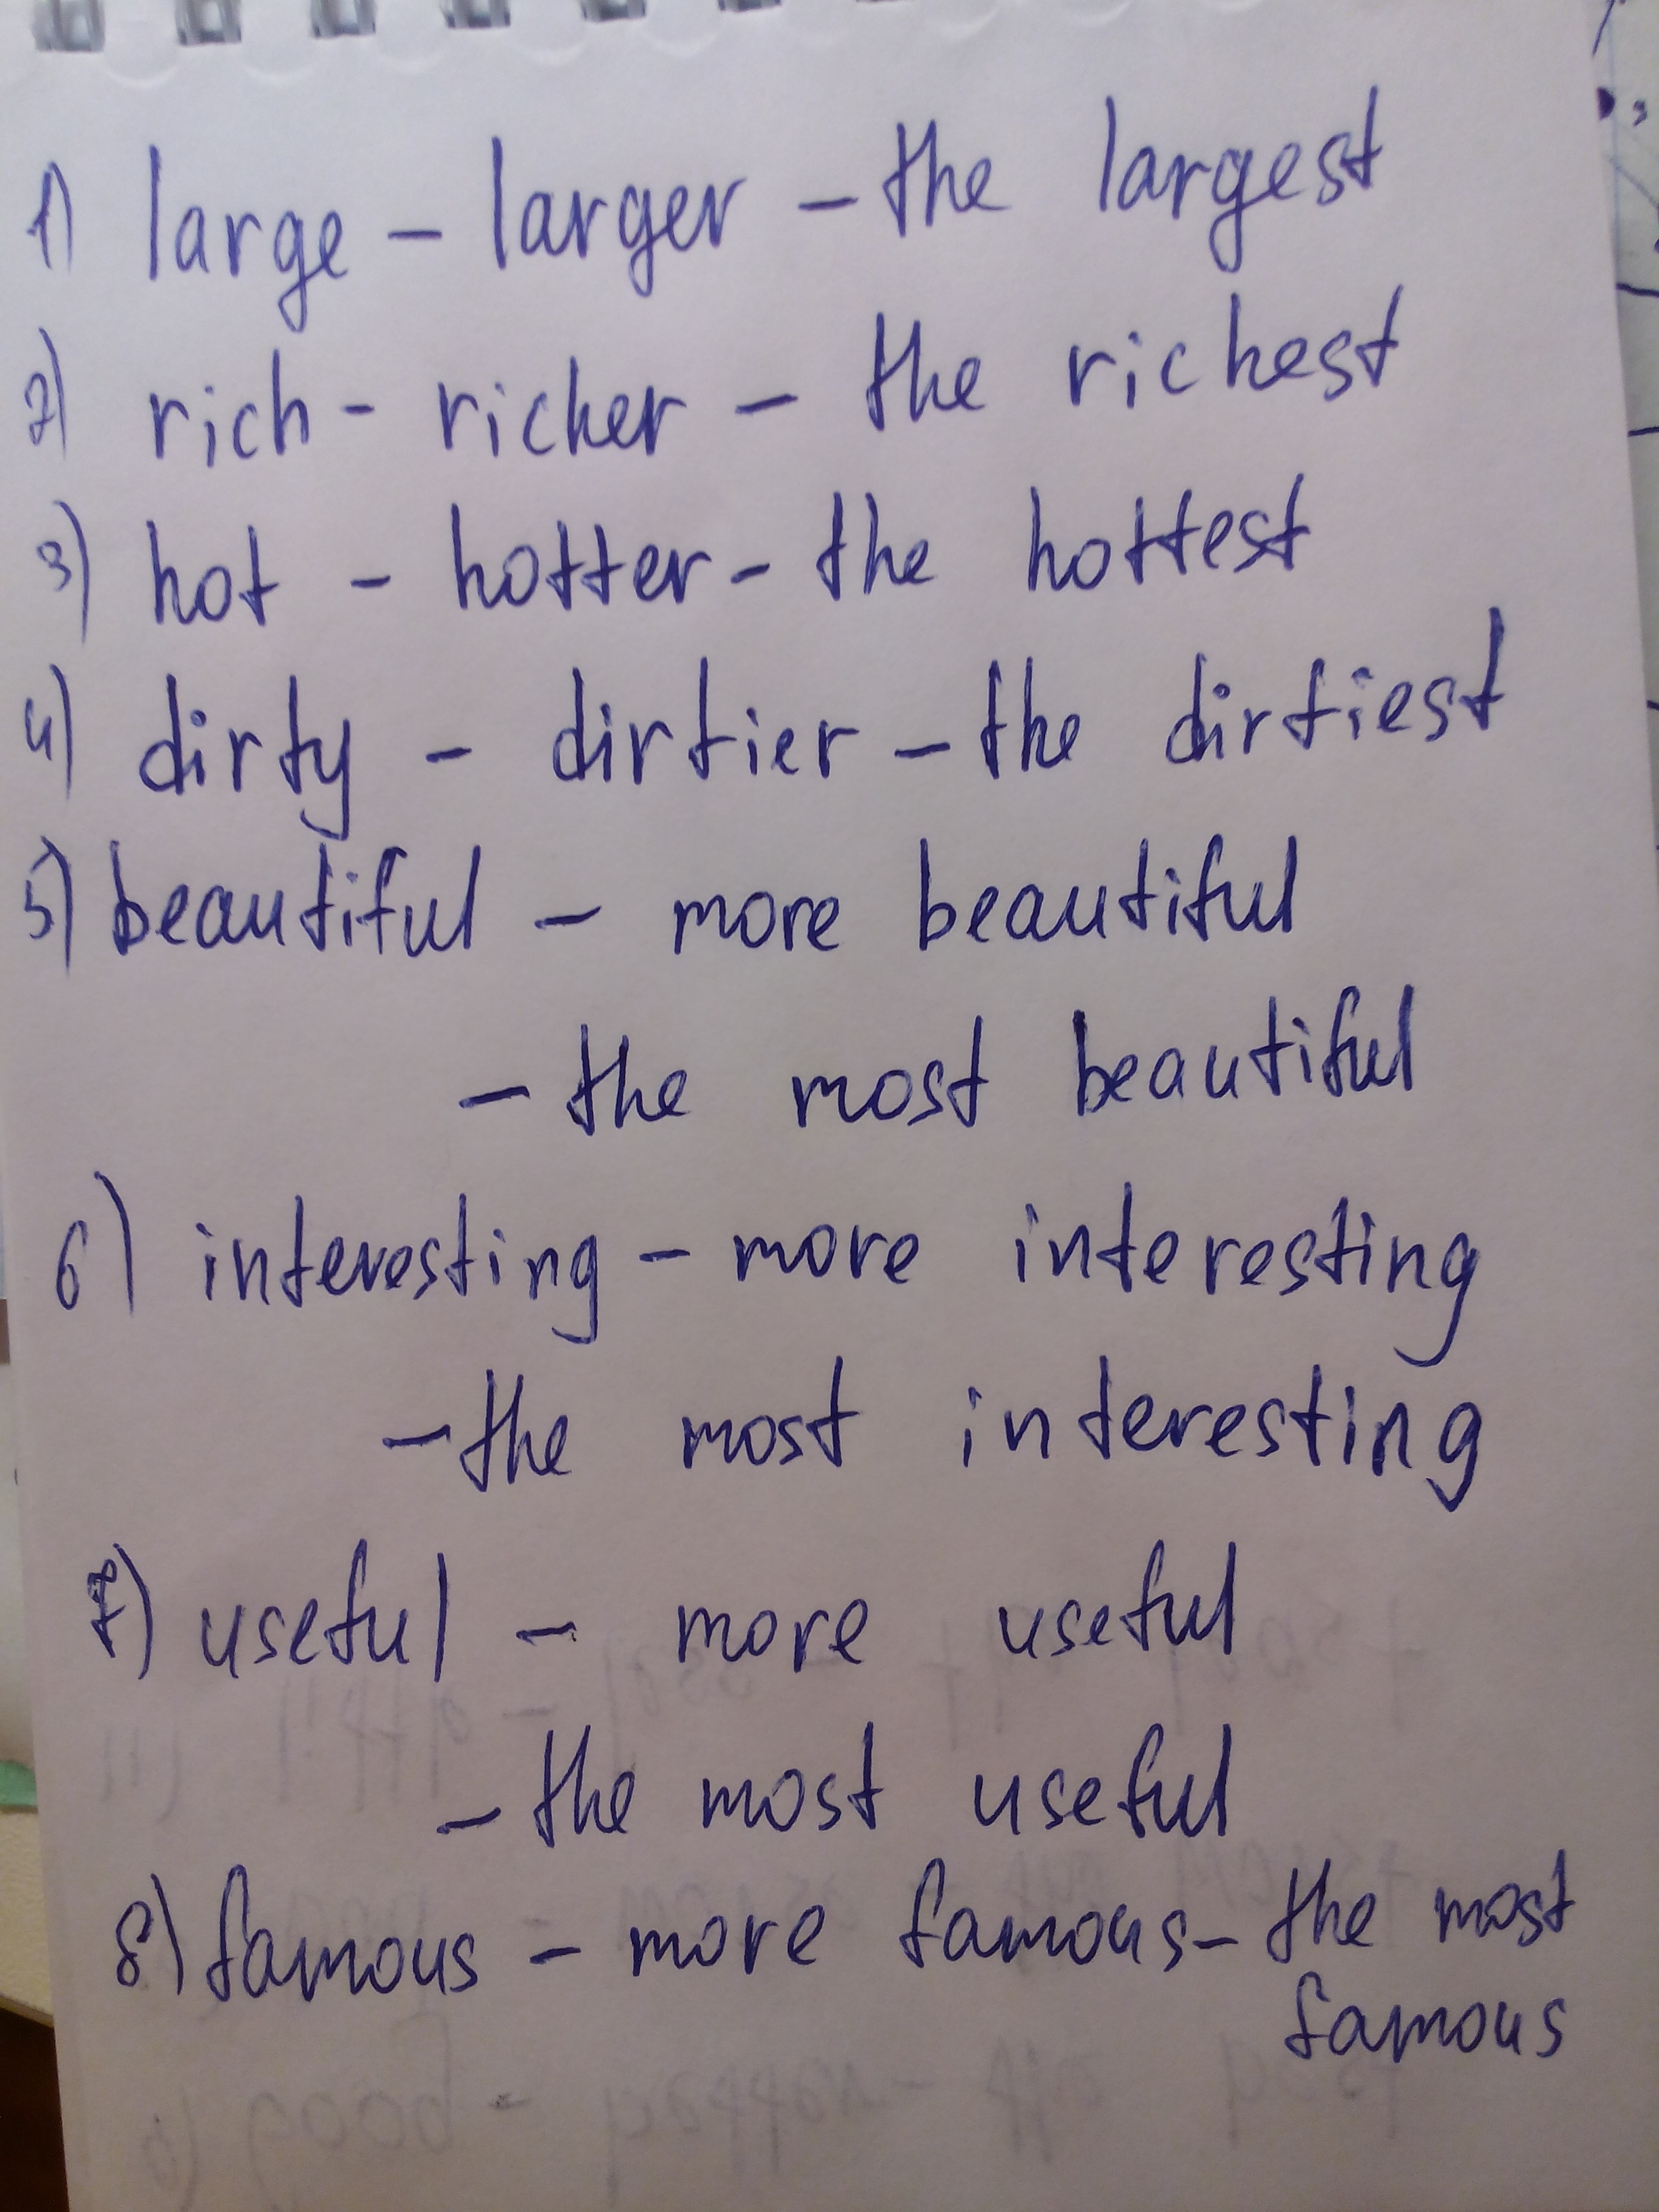 1) large - larger - the largest
2) rich - richer - the richest
3) hot - hotter - the hottest
4) dirty - dirtier - the dirtiest
5) beautiful - more beautiful
- the most beautiful
6) interesting - more interesting
- the most interesting
7) useful - more useful
- the most useful
8) famous - more famous - the most
famous